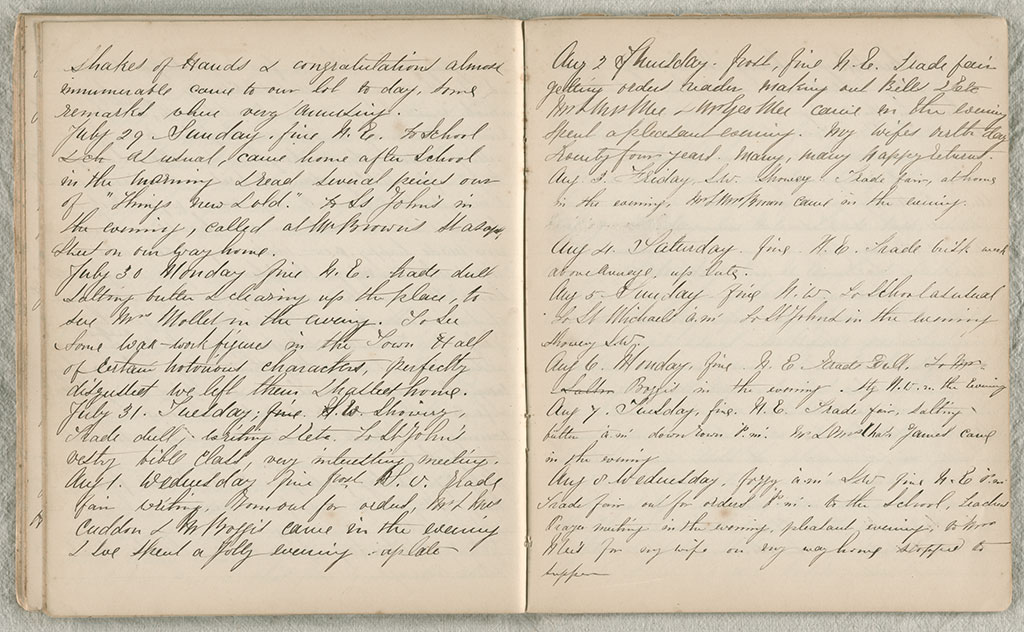 Shakes of Hands & congratulations almost
innumerable came to our lot to day, some
remarks where very amusing.
July 29 Sunday. fine N.E. to School
&ctr as usual, came home after School
in the morning & read several pieces out
of "Things New & old." to St John's in
the evening, called at Mr Brown's
Street on our way home.
July 30 Monday fine N.E. trade dull
Salting butter & clearing up the place, to
see Mrs Mollet in the evening. To see
Some wax-work figures in the Town Hall
of Certain notorious characters, perfectly
disgusted we left them & halted home.
July 31. Tuesday, fine. S.W. Showery,
Trade dull, writing &ctr. To St John's
vestry bible Class, very interesting meeting.
Aug 1. Wednesday fine N.W. trade
fair writing, out for orders, Mr & Mrs
Cuddon & Mr Boggis came in the evening
& we spent a jolly evening up late
Aug 2 Thursday. fine N.E. Trade fair
getting orders ready making out Bills &ctr
Mr & Mrs Mee & Mr Geo Mee came in the evening
Spent a pleasant evening. My wifes birth day
twenty four years. Many, many happy returns.
Aug 3. Friday, S.W. Showery. Trade fair, at home
in the evening, Mr & Mrs Brown came in the evening.
Aug 4. Saturday. fine. N.E. Trade brisk
above average, up late.
Aug 5 Sunday fine N.W. To School as usual
to St Michaels a.m. To St Johns in the evening
Showery S.W.
Aug 6. Monday, fine. N.E. Trade Dull. To Mr
Boggis in the evening. N.W. in the Evening
Aug 7. Tuesday, fine. N.E. Trade fair, Salting
butter a.m. down town P.m. Mr & Mrs Chas James came
in the evening
Aug 8 Wednesday, foggy a.m. S.W. fine N.E. P.m.
Trade fair out for orders P.m. to the School, Teachers
Prayer meeting in the evening, pleasant evening, to Mrs
for my wife on my way home stopped to
supper